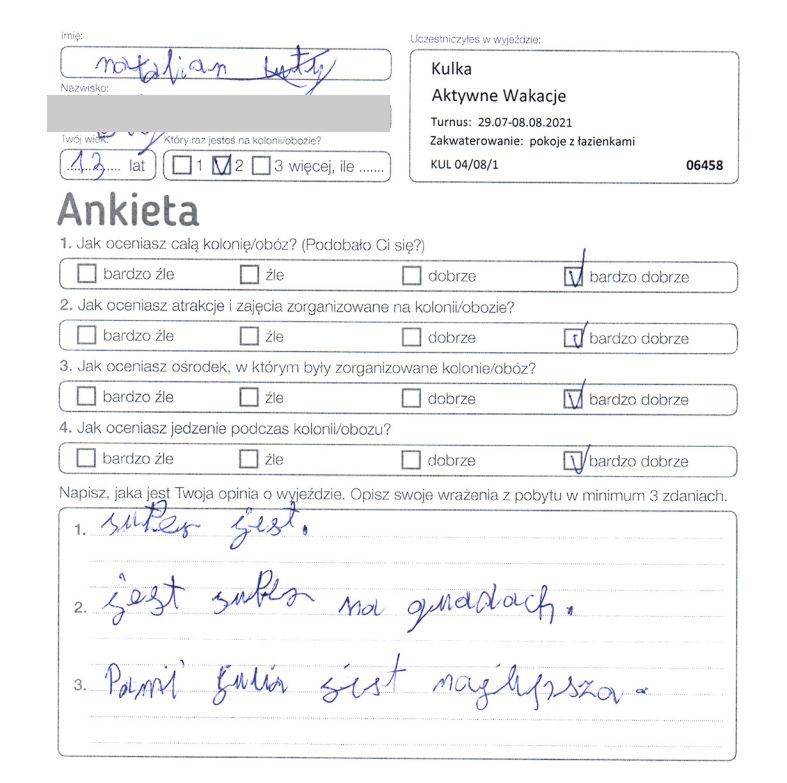 Imię:
natalian
Uczestniczyłeś w wyjeździe:
Kulka
Aktywne Wakacje
Turnus: 29.07-08.08.2021
Zakwaterowanie: pokoje z łazienkami
KUL 04/08/1 06458
Nazwisko:
Twój wiek: Który raz jesteś na kolonii/obozie?
13 lat 1 2 3 więcej, ile .......
Ankieta
1. Jak oceniasz całą kolonię/obóz? (Podobało Ci się?)
bardzo źle źle dobrze bardzo dobrze
2. Jak oceniasz atrakcje i zajęcia zorganizowane na kolonii/obozie?
bardzo źle źle dobrze bardzo dobrze
3. Jak oceniasz ośrodek, w którym były zorganizowane kolonie/obóz?
bardzo źle źle dobrze bardzo dobrze
4. Jak oceniasz jedzenie podczas kolonii/obozu?
bardzo źle źle dobrze bardzo dobrze
Napisz, jaka jest Twoja opinia o wyjeździe. Opisz swoje wrażenia z pobytu w minimum 3 zdaniach.
1. super jest.
2. jest super na quadach.
3. Pani julia jest najlepsza.